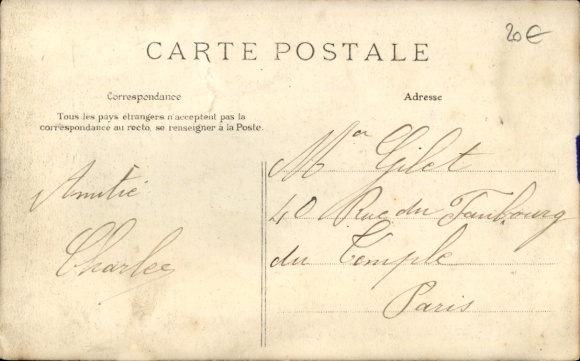 20€
CARTE POSTALE
Correspondance
Adresse
Tous les pays étrangers n'acceptent pas la
correspondance au recto, se renseigner à la Poste.
Amitié
Charles
Mr Gilet
40 Rue du Faubourg
du Temple
Paris